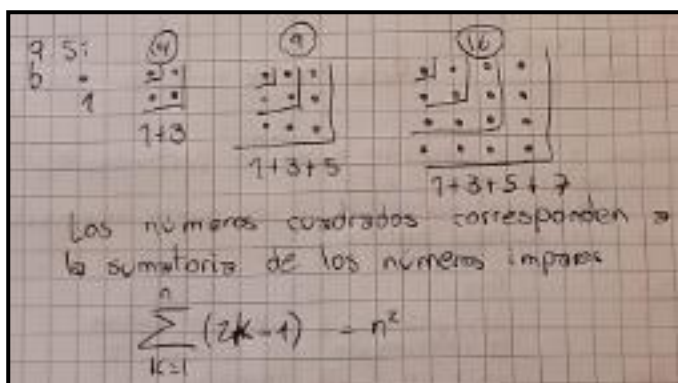 a Si 4 9 16
b
1
1+3
1+3+5
1+3+5+7
Los números cuadrados corresponden a
la sumatoria de los números impares
n
∑ (2k-1) = n²
k=1